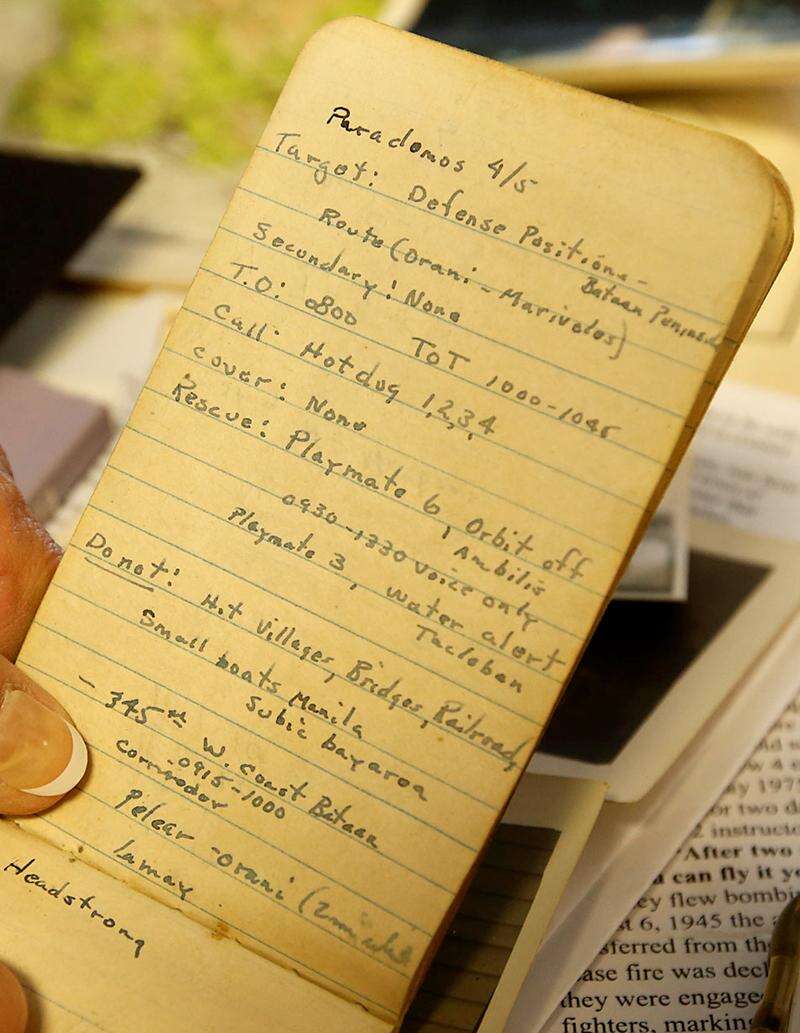 Parademos 4/5
Target: Defense Positions-
Bataan Peninsula
Route (Orani - Marivales)
Secondary: None
T.O: 0800 ToT 1000-1045
Call: Hotdog 1,2,3,4
cover: None
Rescue: Playmate 6, Orbit off
Ambilis
0930-1330 voice only
Playmate 3, water alert
Tacloban
Do not: Hit Villages, Bridges, Railroad,
Small boats Manila
Subic bay area
- 345th W. Coast Bataan
0915-1000
Corrigodor
Pelear - Orani (2
Lamay
Headstrong
or two d
2 instructo
After two
can fly it yo
ey flew bombin
6, 1945 the
sferred from th
ase fire was decl
they were engage
fighters, marking